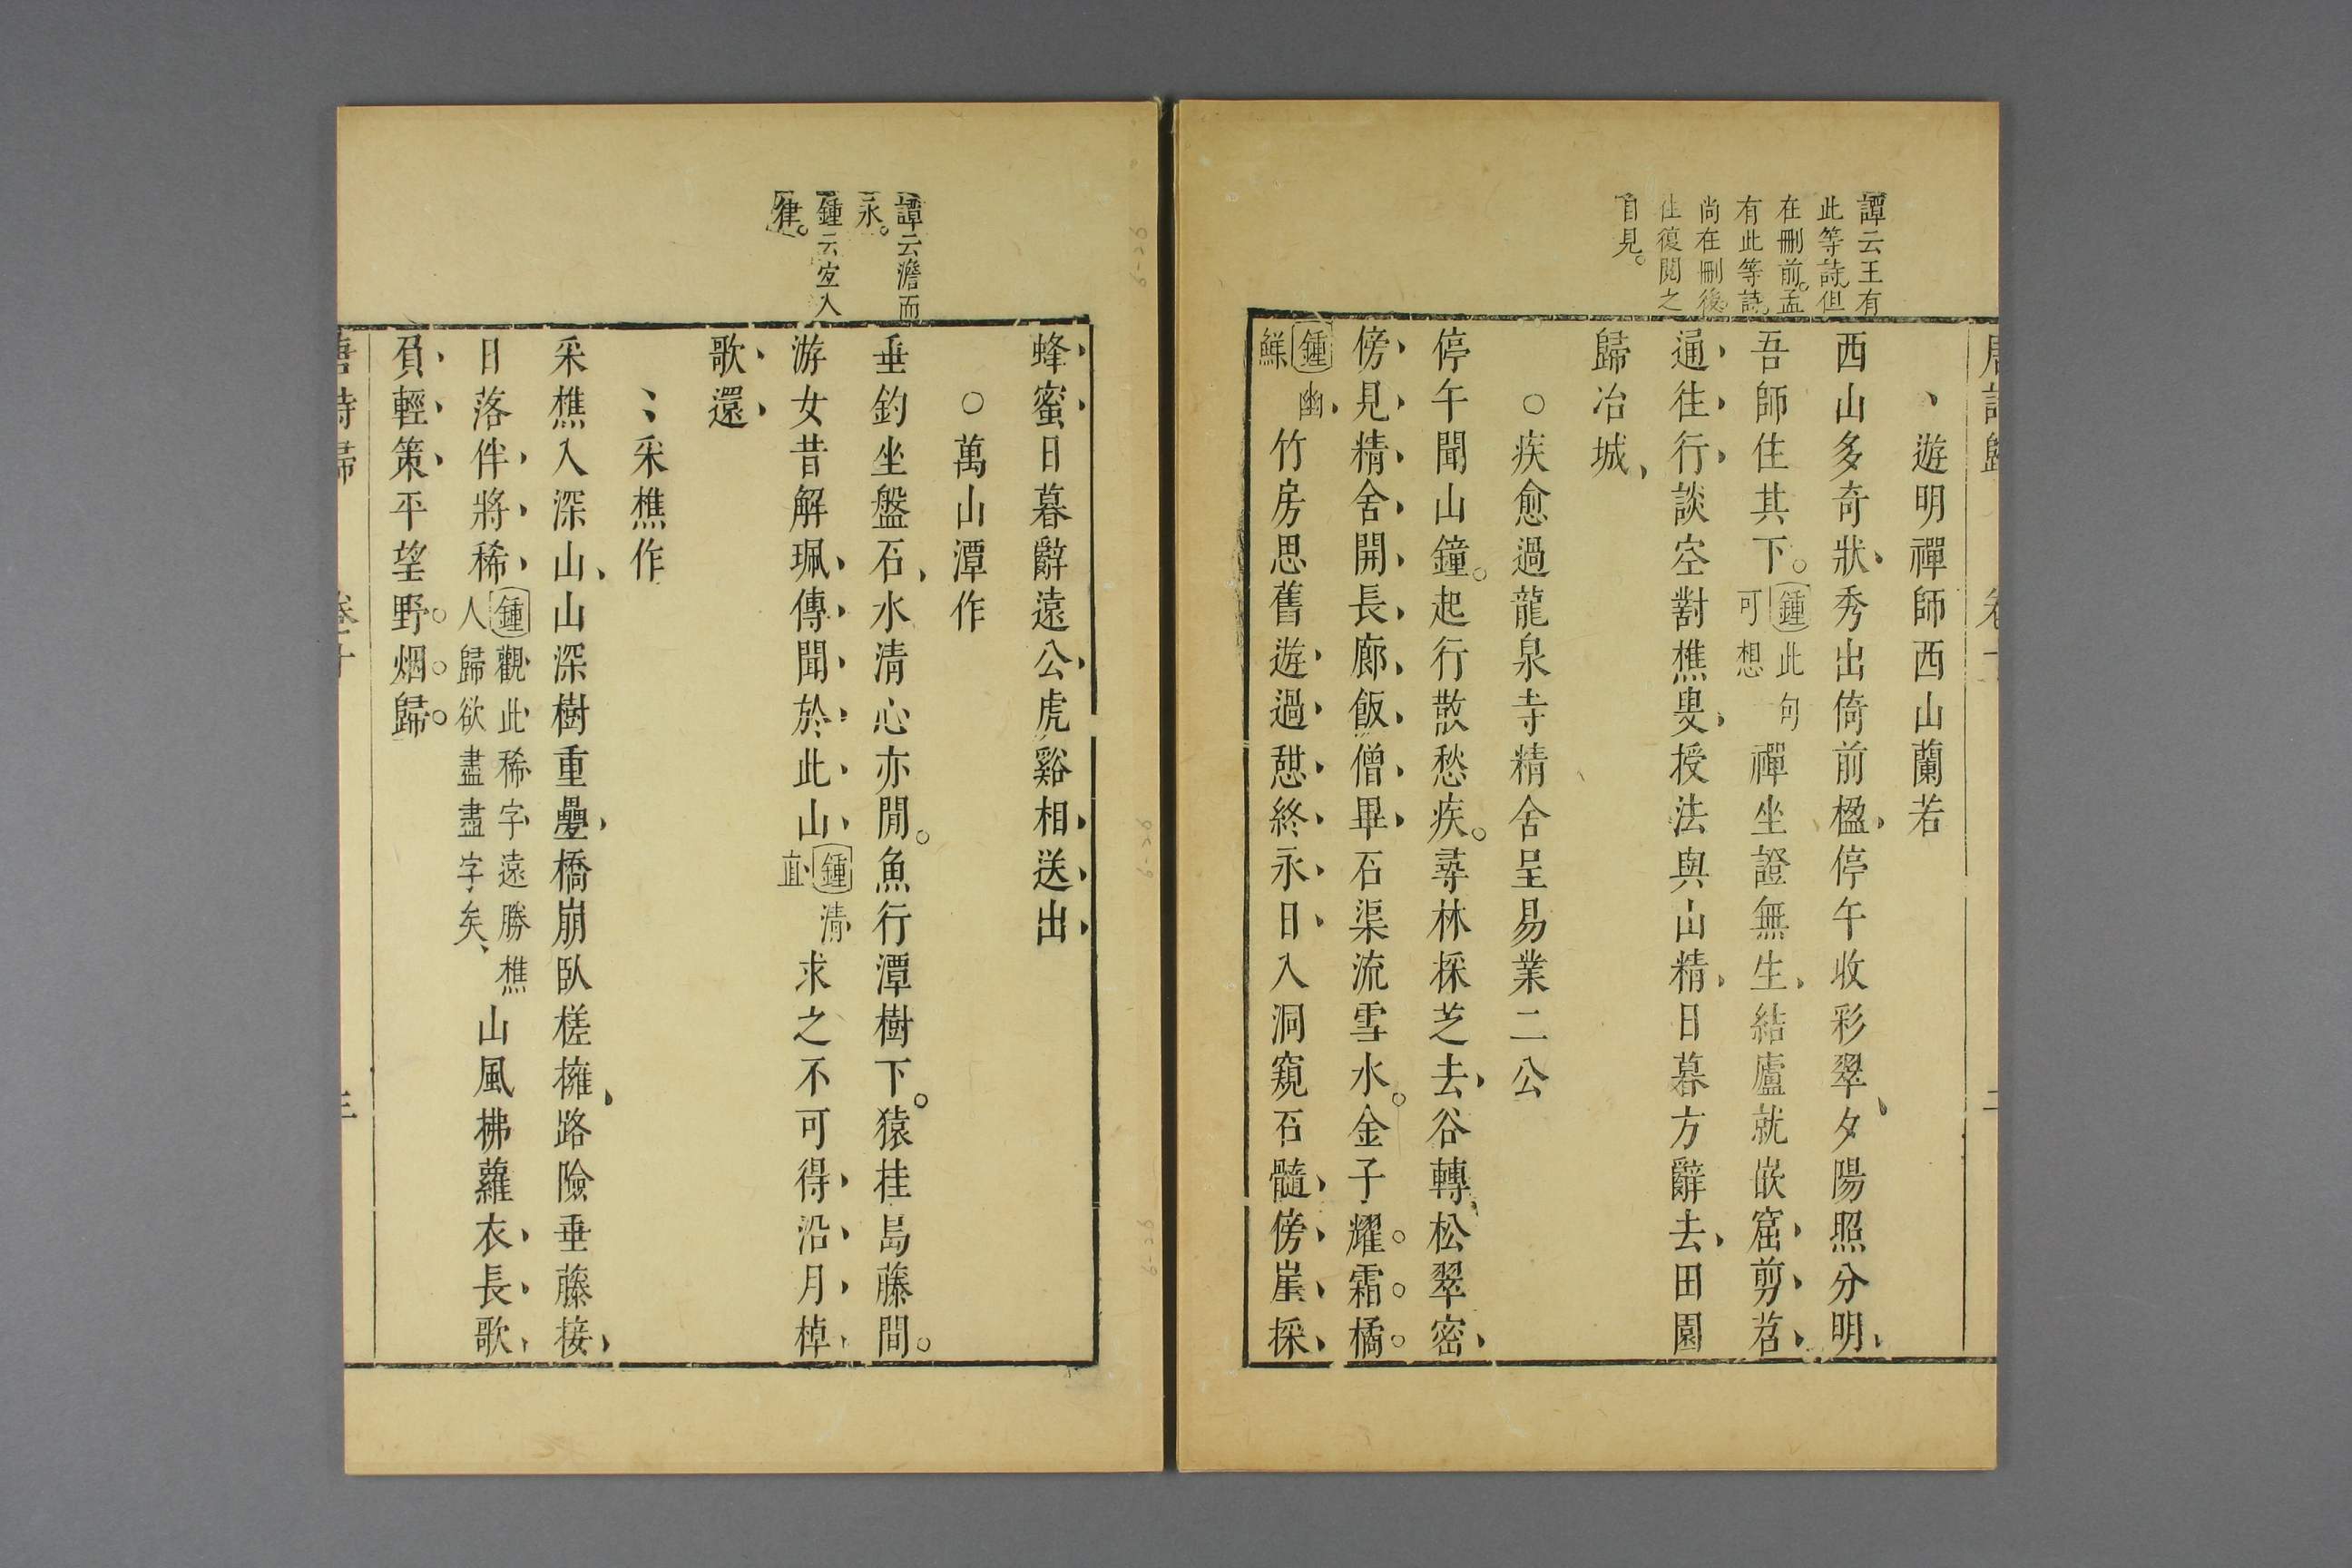 譚云王有
此等詩但
在刪前孟
有此等詩
尚在刪後
往復閱之
自見。
遊明禪師西山蘭若
西山多奇狀秀出倚前楹停午收彩翠夕陽照分明
吾師住其下。鍾此句可想禪坐證無生結廬就嵌窟剪苕
通往行談空對樵叟授法與山精日暮方辭去田園
歸冶城
○疾愈過龍泉寺精舍呈易業二公
停午聞山鐘。起行散愁疾。尋林採芝去谷轉松翠密
傍見精舍開長廊飯僧畢石渠流雪水。金子耀霜橘。
鍾幽鮮竹房思舊遊過憩終永日入洞窺石髓傍崖採
蜂蜜日暮辭遠公虎谿相送出
譚云澹而
永。
鍾云宜入
律。
○萬山潭作
垂釣坐盤石水清心亦閒。魚行潭樹下。猿挂島藤間。
游女昔解珮傳聞於此山鍾清直求之不可得沿月棹
歌還
采樵作
采樵入深山山深樹重疊橋崩臥槎擁路險垂藤接
日落伴將稀鍾觀此稀字遠勝樵人歸欲盡盡字矣山風拂蘿衣長歌
負輕策平望野。烟。歸。
唐詩歸 卷十 三